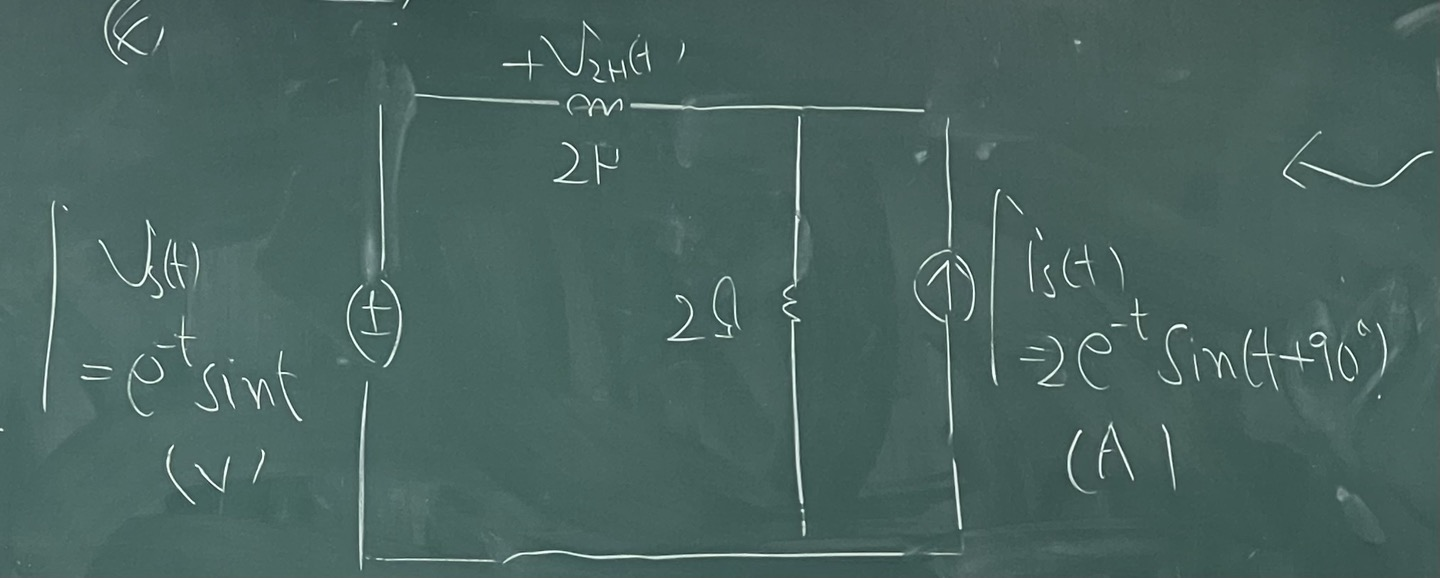 + V₂H(t)
2H
Vs(t)
= e^-t sint
(V)
±
2Ω
is(t)
=2e^-t Sin(t+90°)
(A)